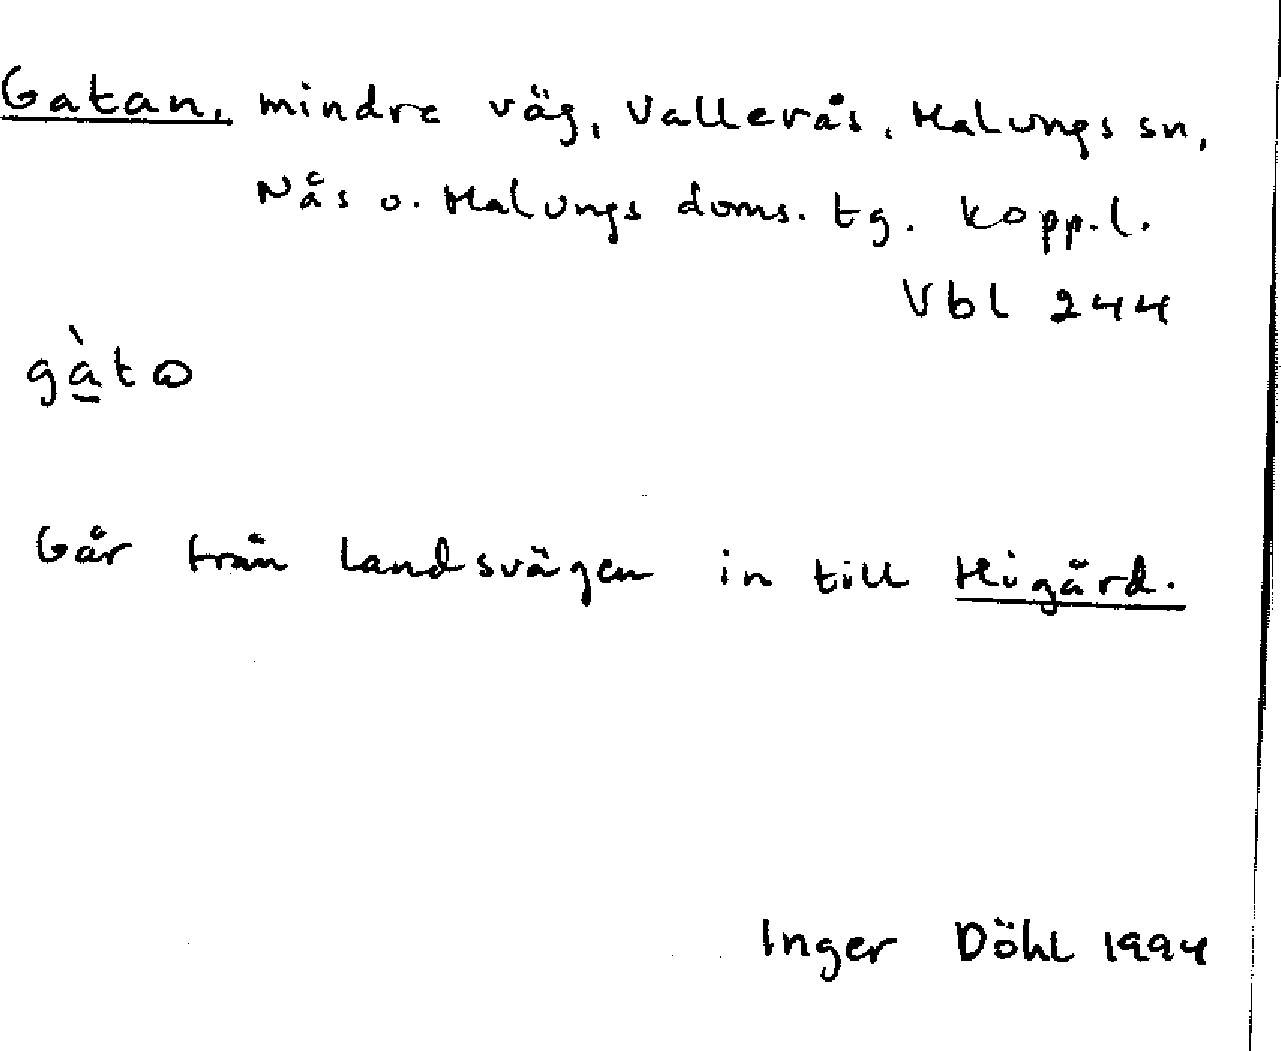 Gatan, mindre väg, Vallerås, Malungs sn,
Nås o. Malungs doms. tg. Kopp.l.
Vbl 244
gà̠t
Går från landsvägen in till Higärd.
Inger Döhl 1994